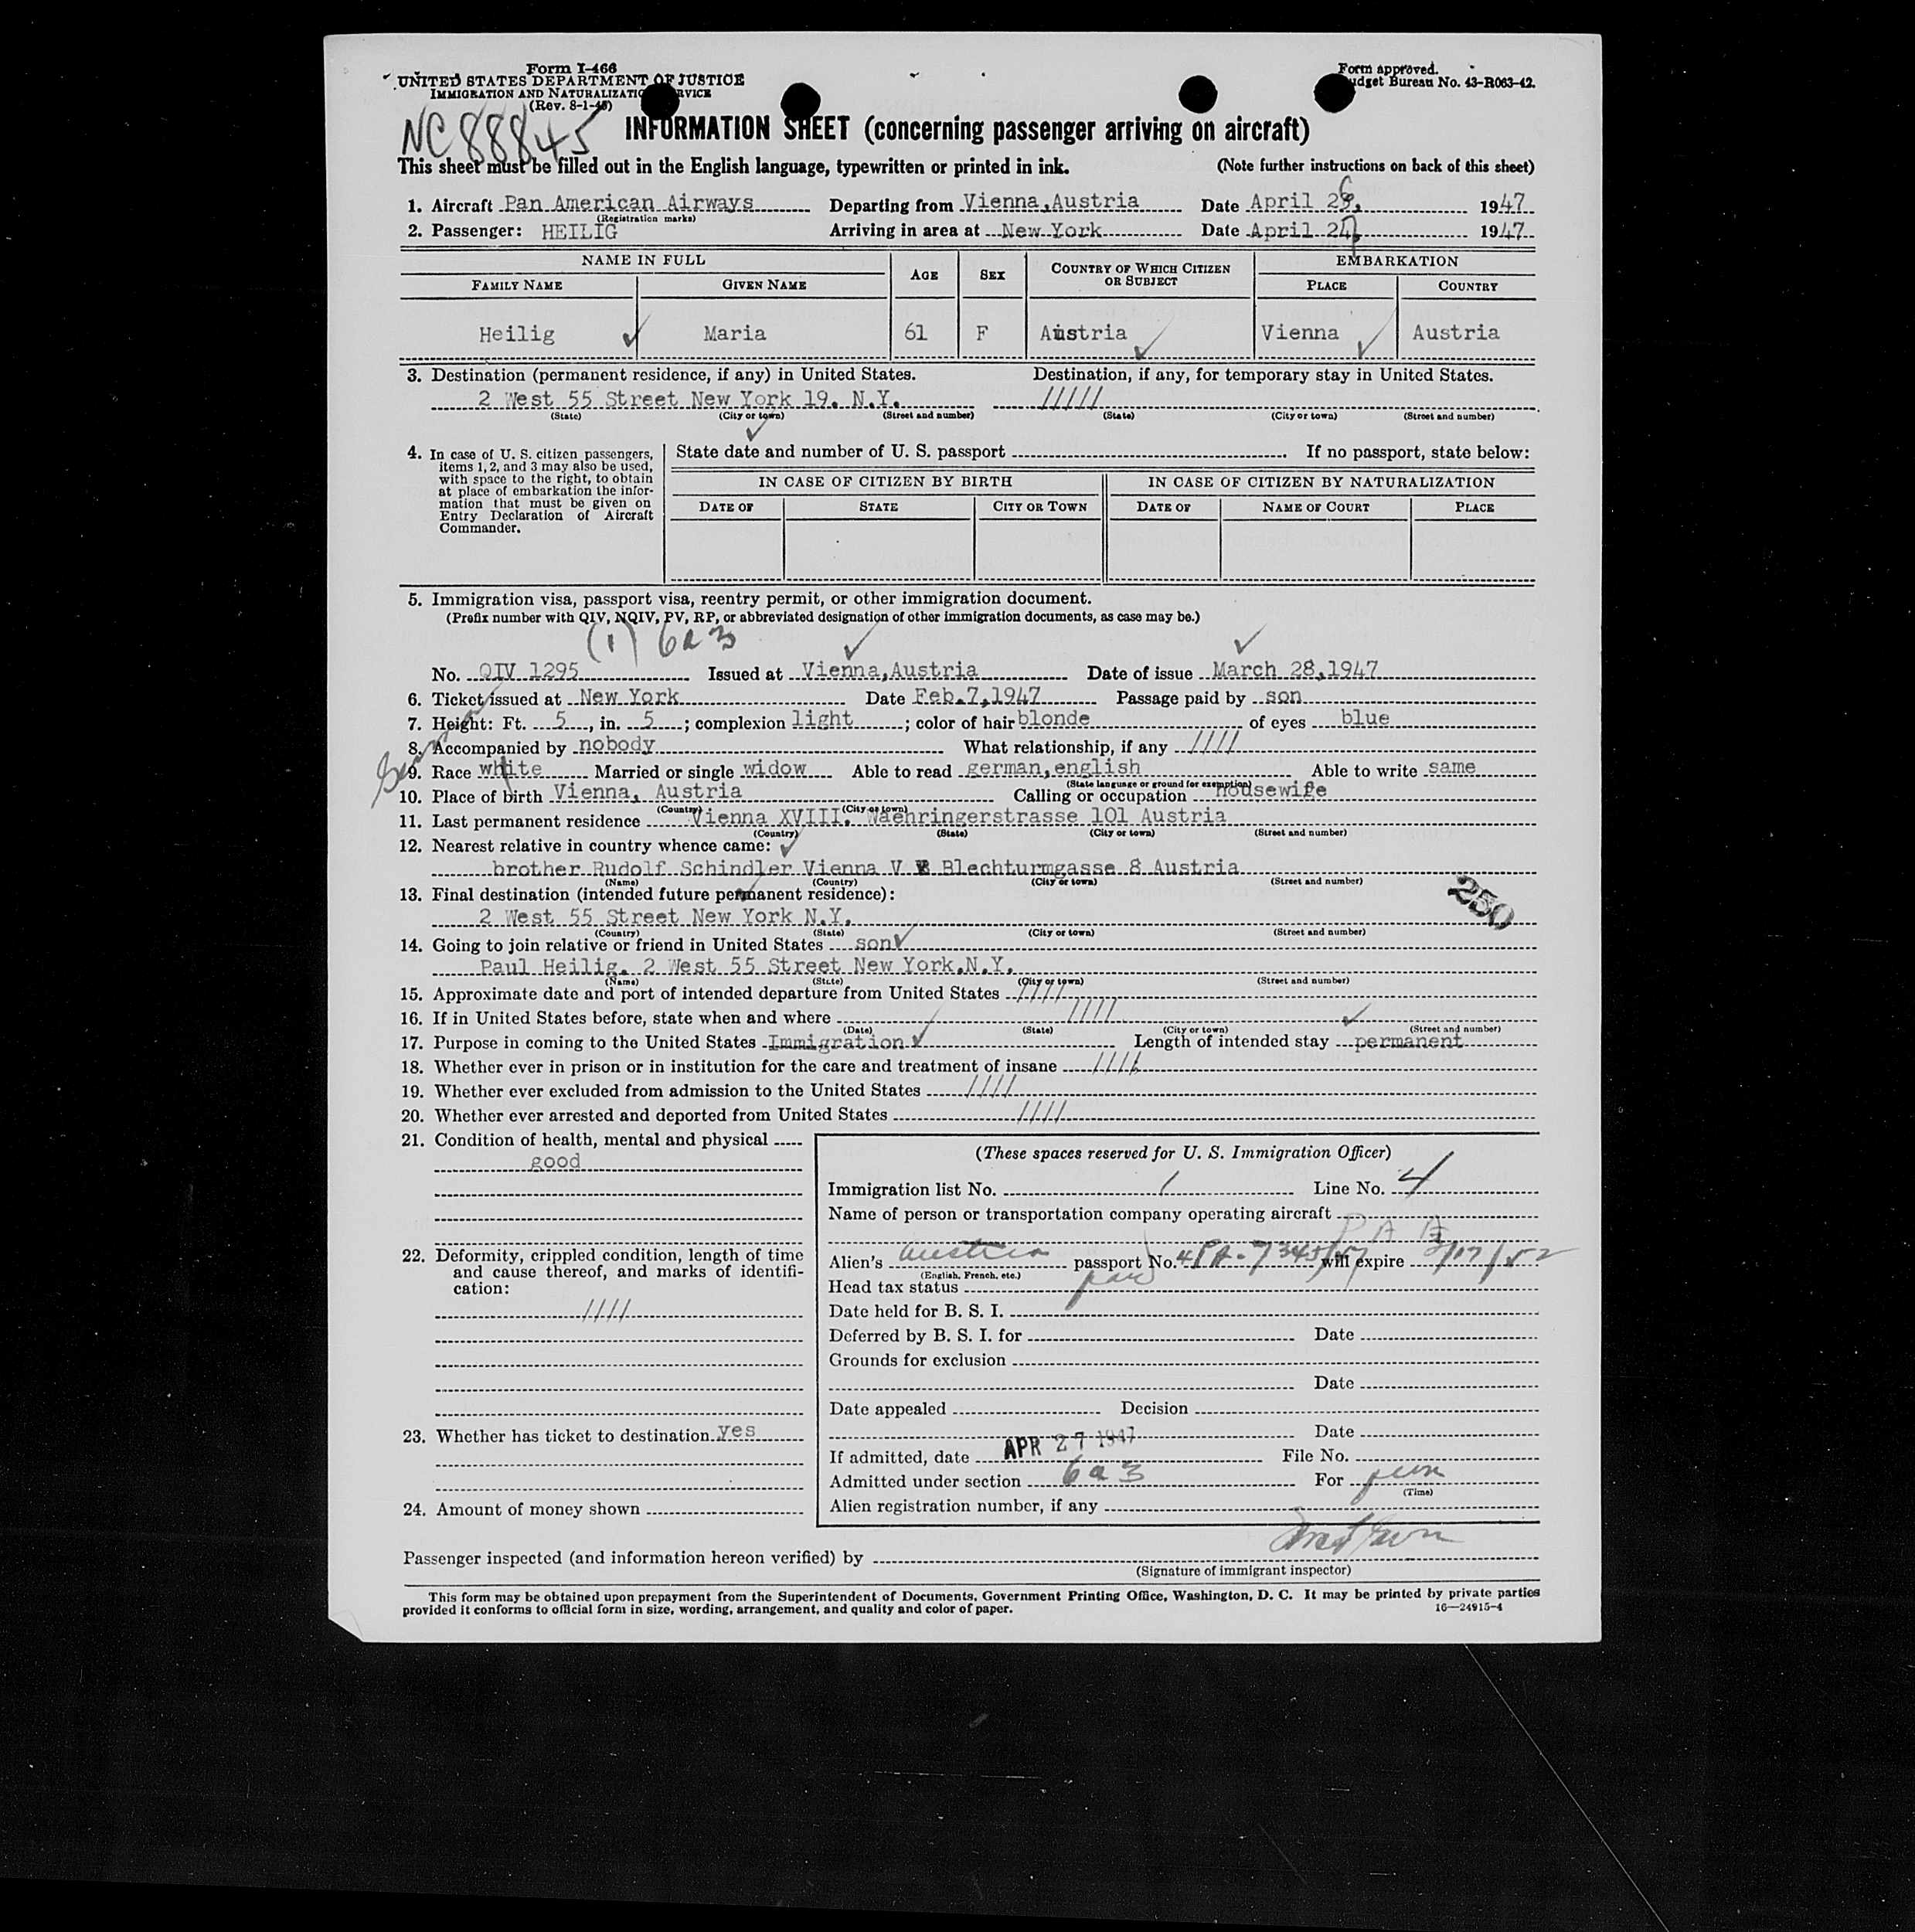 Form I-466
UNITED STATES DEPARTMENT OF JUSTICE
IMMIGRATION AND NATURALIZATION SERVICE
(Rev. 8-1-45)
Form approved.
Budget Bureau No. 43-R063-42.
NC88845
INFORMATION SHEET (concerning passenger arriving on aircraft)
This sheet must be filled out in the English language, typewritten or printed in ink. (Note further instructions on back of this sheet)
1. Aircraft Pan American Airways Departing from Vienna,Austria Date April 26, 1947
(Registration marks)
2. Passenger: HEILIG Arriving in area at New York Date April 27, 1947
NAME IN FULL AGE SEX COUNTRY OF WHICH CITIZEN OR SUBJECT EMBARKATION
FAMILY NAME GIVEN NAME PLACE COUNTRY
Heilig Maria 61 F Austria Vienna Austria
3. Destination (permanent residence, if any) in United States. Destination, if any, for temporary stay in United States.
2 West 55 Street New York 19. N.Y. /////
(State) (City or town) (Street and number) (State) (City or town) (Street and number)
4. In case of U. S. citizen passengers, items 1, 2, and 3 may also be used, with space to the right, to obtain at place of embarkation the information that must be given on Entry Declaration of Aircraft Commander.
State date and number of U. S. passport If no passport, state below:
IN CASE OF CITIZEN BY BIRTH IN CASE OF CITIZEN BY NATURALIZATION
DATE OF STATE CITY OR TOWN DATE OF NAME OF COURT PLACE
5. Immigration visa, passport visa, reentry permit, or other immigration document.
(Prefix number with QIV, NQIV, PV, RP, or abbreviated designation of other immigration documents, as case may be.)
(1) 6a3
No. QIV 1295 Issued at Vienna,Austria Date of issue March 28,1947
6. Ticket issued at New York Date Feb.7,1947 Passage paid by son
7. Height: Ft. 5, in. 5; complexion light; color of hair blonde of eyes blue
8. Accompanied by nobody What relationship, if any ////
9. Race white Married or single widow Able to read german,english Able to write same
(State language or ground for exemption)
10. Place of birth Vienna, Austria Calling or occupation housewife
(Country) (City or town)
11. Last permanent residence Vienna XVIII. Waehringerstrasse 101 Austria
(Country) (State) (City or town) (Street and number)
12. Nearest relative in country whence came:
brother Rudolf Schindler Vienna V Blechturmgasse 8 Austria
(Name) (Country) (City or town) (Street and number)
13. Final destination (intended future permanent residence):
250
2 West 55 Street New York N.Y.
(Country) (State) (City or town) (Street and number)
14. Going to join relative or friend in United States son
Paul Heilig. 2 West 55 Street New York.N.Y.
(Name) (State) (City or town) (Street and number)
15. Approximate date and port of intended departure from United States ////
16. If in United States before, state when and where ////
(Date) (State) (City or town) (Street and number)
17. Purpose in coming to the United States Immigration Length of intended stay permanent
18. Whether ever in prison or in institution for the care and treatment of insane ////
19. Whether ever excluded from admission to the United States ////
20. Whether ever arrested and deported from United States ////
21. Condition of health, mental and physical
good
22. Deformity, crippled condition, length of time and cause thereof, and marks of identification:
////
23. Whether has ticket to destination yes
24. Amount of money shown
(These spaces reserved for U. S. Immigration Officer)
Immigration list No. 1 Line No. 4
Name of person or transportation company operating aircraft
P A A
Alien's Austria passport No. will expire
(English, French, etc.)
Head tax status
Date held for B. S. I.
Deferred by B. S. I. for Date
Grounds for exclusion
Date
Date appealed Decision
Date
If admitted, date APR 27 1947 File No.
Admitted under section 6a3 For perm
(Time)
Alien registration number, if any
Passenger inspected (and information hereon verified) by
(Signature of immigrant inspector)
This form may be obtained upon prepayment from the Superintendent of Documents, Government Printing Office, Washington, D. C. It may be printed by private parties
provided it conforms to official form in size, wording, arrangement, and quality and color of paper. 16—24915-4